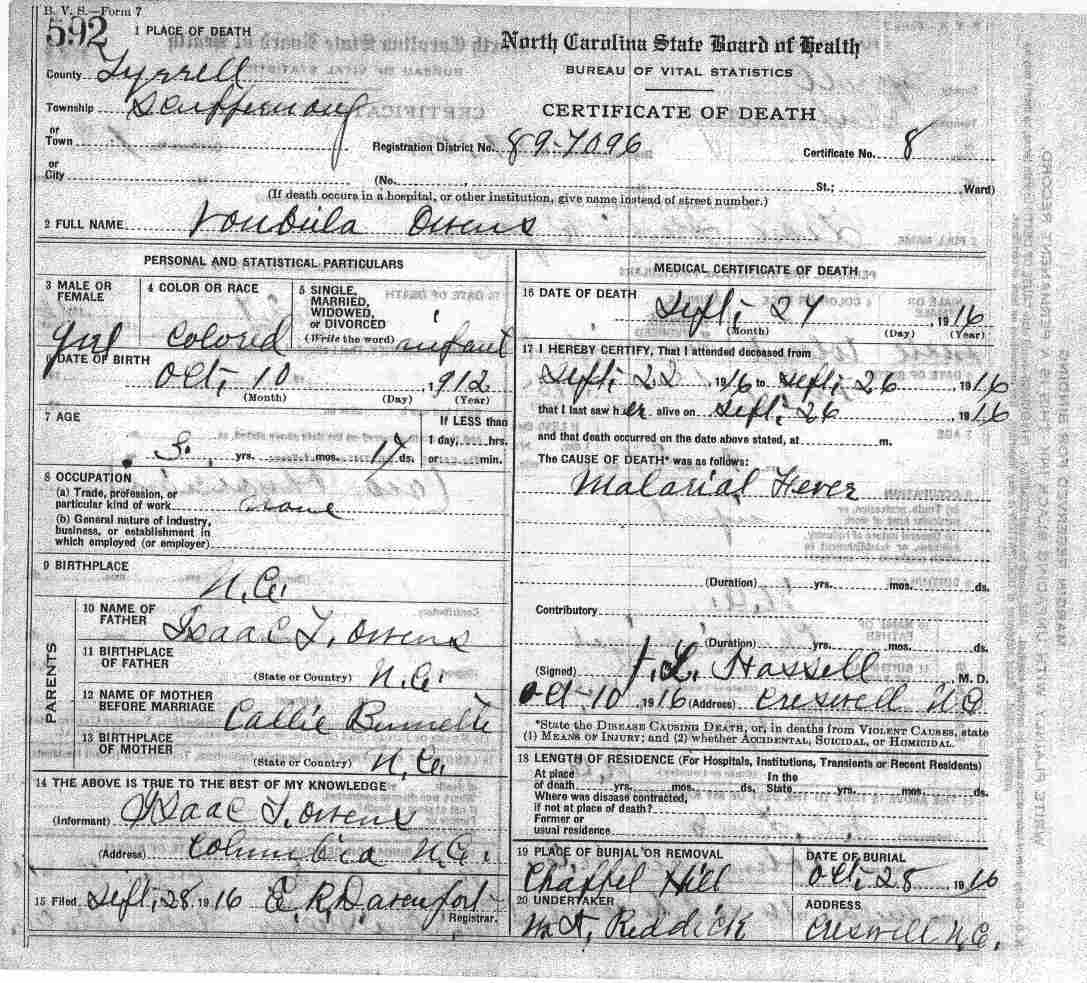 B. V. S.—Form 7
592
1 PLACE OF DEATH
North Carolina State Board of Health
BUREAU OF VITAL STATISTICS
CERTIFICATE OF DEATH
County Tyrrell
Township Scuppernong
or
Town
Registration District No. 89-7096
Certificate No. 8
or
City
(No. , St.; Ward)
(If death occurs in a hospital, or other institution, give name instead of street number.)
2 FULL NAME Owens
PERSONAL AND STATISTICAL PARTICULARS
3 MALE OR FEMALE
4 COLOR OR RACE
5 SINGLE, MARRIED, WIDOWED, or DIVORCED
(Write the word) infant
Colored
6 DATE OF BIRTH
Oct, 10 , 1912
(Month) (Day) (Year)
7 AGE
If LESS than
1 day, hrs.
yrs. mos. 17 ds. or min.
8 OCCUPATION
(a) Trade, profession, or
particular kind of work none
(b) General nature of industry,
business, or establishment in
which employed (or employer)
9 BIRTHPLACE
N.C.
PARENTS
10 NAME OF FATHER
Isaac T. Owens
11 BIRTHPLACE OF FATHER
(State or Country) N.C.
12 NAME OF MOTHER BEFORE MARRIAGE
Callie
13 BIRTHPLACE OF MOTHER
(State or Country) N.C.
14 THE ABOVE IS TRUE TO THE BEST OF MY KNOWLEDGE
(Informant) Isaac T. Owens
(Address) Columbia N.C.
15 Filed Sept, 28, 1916 E. R. Davenport
Registrar.
MEDICAL CERTIFICATE OF DEATH
16 DATE OF DEATH
Sept, 27 , 1916
(Month) (Day) (Year)
17 I HEREBY CERTIFY, That I attended deceased from
Sept, 22 1916 to Sept, 26 1916
that I last saw her alive on Sept, 26 1916
and that death occurred on the date above stated, at m.
The CAUSE OF DEATH* was as follows:
Malarial Fever
(Duration) yrs. mos. ds.
Contributory
(Duration) yrs. mos. ds.
(Signed) J. L. Hassell , M. D.
Oct-10, 1916 (Address) Creswell N.C.
*State the DISEASE CAUSING DEATH, or, in deaths from VIOLENT CAUSES, state
(1) MEANS OF INJURY; and (2) whether ACCIDENTAL, SUICIDAL, or HOMICIDAL.
18 LENGTH OF RESIDENCE (For Hospitals, Institutions, Transients or Recent Residents)
At place In the
of death yrs. mos. ds. State yrs. mos. ds.
Where was disease contracted,
if not at place of death?
Former or
usual residence
19 PLACE OF BURIAL OR REMOVAL
Chappel Hill
DATE OF BURIAL
Oct, 28 1916
20 UNDERTAKER
Reddick
ADDRESS
Creswell N.C.